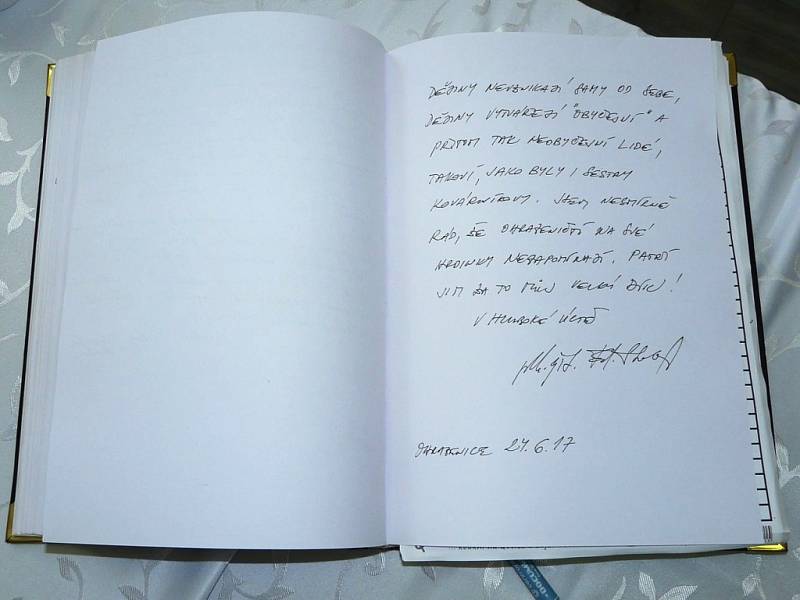 DĚJINY NEVZNIKAJÍ SAMY OD SEBE,
DĚJINY VYTVÁŘEJÍ "OBYČEJNÍ" A
PŘITOM TAK NEOBYČEJNÍ LIDÉ,
TAKOVÍ, JAKO BYLY I SESTRY
KOVÁRNÍKOVY. JSEM NESMÍRNĚ
RÁD, ŽE OHRAŽENIČTÍ NA SVÉ
HRDINKY NEZAPOMÍNAJÍ. PATŘÍ
JIM ZA TO MŮJ VELKÝ DÍK!
V HLUBOKÉ ÚCTĚ
OHRAŽENICE 24.6.17